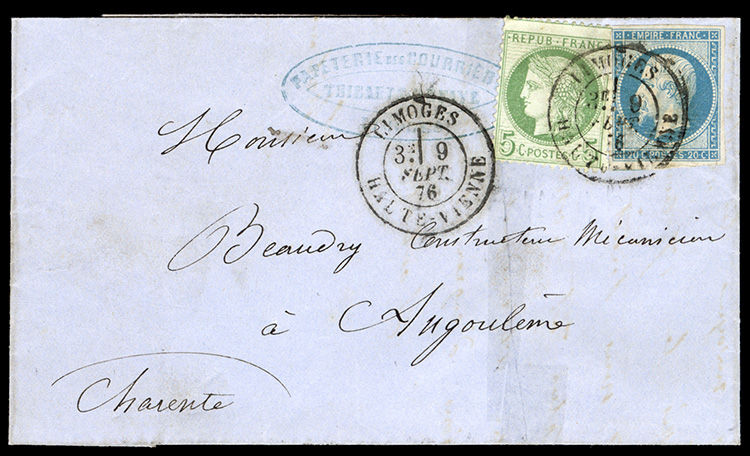 REPUB · FRANC ·
5 C POSTES
EMPIRE FRANC ·
20 C POSTES 20 C
PAPETERIE DES COURRIÈRES
LIMOGES
3E 9
SEPT.
76
HAUTE-VIENNE
LIMOGES
9
76
Monsieur
Beaudry Constructeur Mécanicien
à Angoulême
Charente